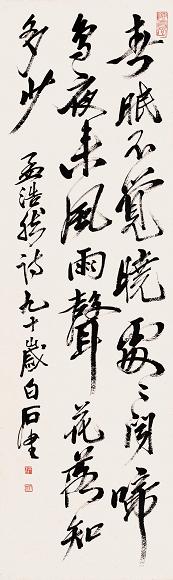 春眠不覺曉處〻聞啼
鳥夜來風雨聲花落知
多少
孟浩然詩九十歲白石書